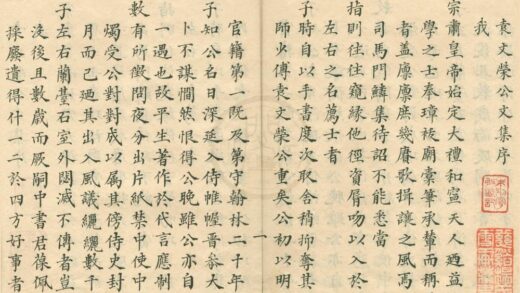 袁文榮公文集序
我
宗肅皇帝始定大禮和宣天人迺益
學之士奉璋祓廟橐筆承輦而稱
者蓋廩廩庶幾賡歌揖讓之風焉
司馬門鱗集待詔不能悉當
指則往往窺緣他徑資脣吻以入於
左右之名薦士者
子時自以手書度次取舍稍抑奪其
師少傅袁文榮公重矣公初以明
一
官籍第一既及第守翰林二十年
子知公名日深延入侍帷幄晉參大
卜不謀間然恨得公晚雖公亦自
一遇也故平生著作於代言應制
數有所徵問夜分出片紙禁中使中
燭受公對對成以属其傍侍史封
月而己廼其出入風議纚纚數千
子左右蘭臺石室外閟滅不傳者豈
沒後且數歲而厥嗣中書君葆佩
採廢遺得什一二於四方好事者